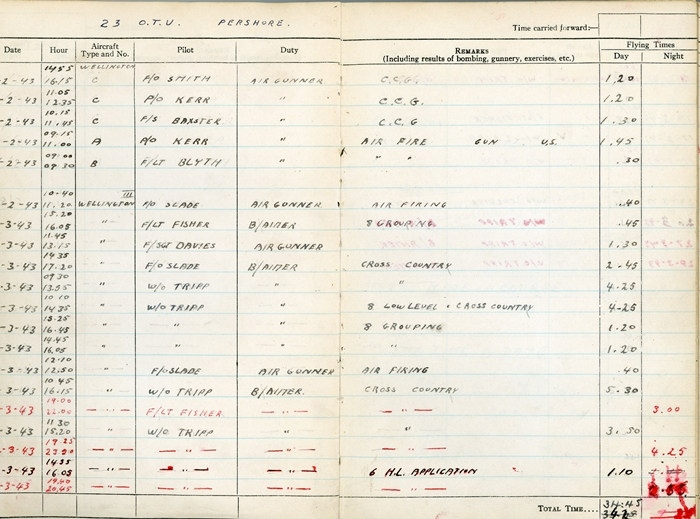 23 O.T.U. PERSHORE.
Time carried forward:—
Date Hour Aircraft Type and No. Pilot Duty REMARKS (Including results of bombing, gunnery, exercises, etc.) Flying Times Day Night
14.55 WELLINGTON
2-43 16.15 C F/O SMITH AIR GUNNER C.C.G. 1.20
11.05
-2-43 12.35 C P/O KERR " C.C.G. 1.20
10.15
-2-43 11.45 C F/S BAXSTER " C.C.G 1.30
09.15
-2-43 11.00 A P/O KERR " AIR FIRE GUN U.S. 1.45
09.00
-2-43 09.30 B F/LT BLYTH " " " .30
10.40 III
-2-43 11.20 WELLINGTON F/O SLADE AIR GUNNER AIR FIRING .40
15.20
-3-43 16.05 " F/LT FISHER B/AIMER 8 GROUPING .45
11.45
-3-43 13.15 " F/SGT DAVIES AIR GUNNER 1.30
14.35
-3-43 17.20 " F/O SLADE B/AIMER CROSS COUNTRY 2.45
09.30
-3-43 13.55 " W/O TRIPP " " 4.25
10.10
-3-43 14.35 " W/O TRIPP " 8 LOW LEVEL . CROSS COUNTRY 4-25
15.25
-3-43 16.45 " " " 8 GROUPING 1.20
14.45
-3-43 16.05 " " " " 1.20
12.10
-3-43 12.50 " F/O SLADE AIR GUNNER AIR FIRING .40
10.45
-3-43 16.15 " W/O TRIPP B/AIMER. CROSS COUNTRY 5.30
19.00
-3-43 22.00 " F/LT FISHER " " 3.00
11.30
-3-43 15.20 " W/O TRIPP " " 3.50
19.25
-3-43 23.50 " " " " 4.25
14.55
-3-43 16.05 " " " 6 H.L. APPLICATION 1.10
19.40
-3-43 20.45 " " " "
TOTAL TIME.... 34.45